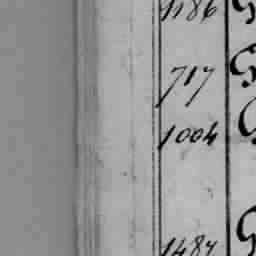 1186
717
1004
1487